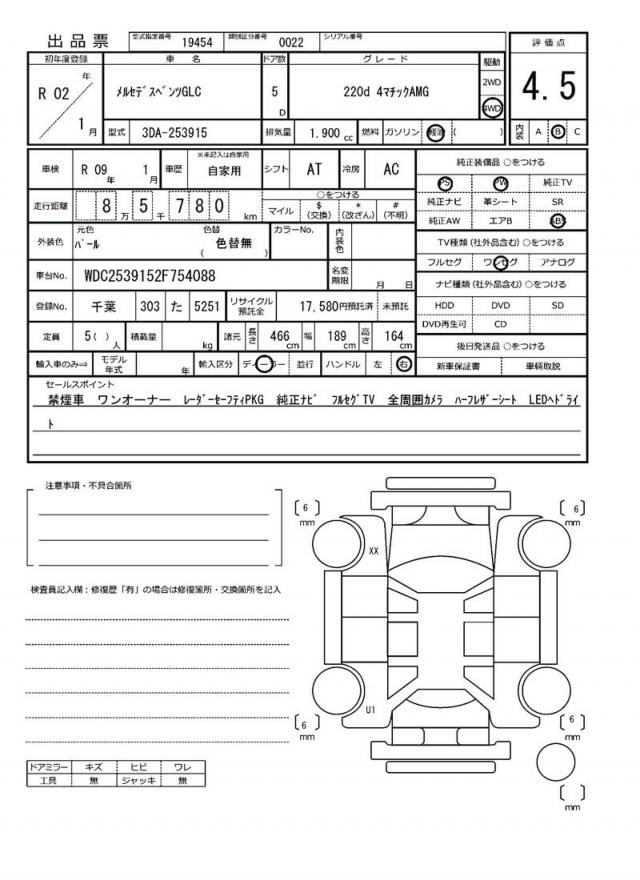 出品票 型式指定番号 19454 類別区分番号 0022 シリアル番号
初年度登録 車 名 ドア数 グレード 駆動 評価点
R 02 年 1 月 ﾒﾙｾﾃﾞｽﾍﾞﾝﾂGLC 5 D 220d 4マチックAMG 2WD 4WD 4.5
型式 3DA-253915 排気量 1.900 cc 燃料 ガソリン 軽油 ( ) 内装 A B C
車検 R 09 年 1 月 車歴 ※未記入は自家用 自家用 シフト AT 冷房 AC
走行距離 8 万 5 千 7 8 0 km ○をつける マイル $ (交換) * (改ざん) # (不明)
外装色 元色 ﾊﾟｰﾙ 色替 ( 色替無 ) カラーNo. 内装色
車台No. WDC2539152F754088 名変期限 月 日
登録No. 千葉 303 た 5251 リサイクル預託金 17,580円預託済 未預託
定員 5( ) 人 積載量 kg 諸元 長さ 466 cm 幅 189 cm 高さ 164 cm
輸入車のみ⇒ モデル年式 年 輸入区分 ディーラー 並行 ハンドル 左 右
純正装備品 ○をつける
PS PW 純正TV
純正ナビ 革シート SR
純正AW エアB ABS
TV種類 (社外品含む) ○をつける
フルセグ ワンセグ アナログ
ナビ種類 (社外品含む) ○をつける
HDD DVD SD
DVD再生可 CD
後日発送品 ○をつける
新車保証書 車輌取説
セールスポイント
禁煙車 ワンオーナー ﾚｰﾀﾞｰｾｰﾌﾃｨPKG 純正ﾅﾋﾞ ﾌﾙｾｸﾞTV 全周囲ｶﾒﾗ ﾊｰﾌﾚｻﾞｰｼｰﾄ LEDﾍﾄﾞﾗｲ
ﾄ
注意事項・不具合箇所
検査員記入欄：修復歴「有」の場合は修復箇所・交換箇所を記入
ドアミラー キズ ヒビ ワレ
工具 無 ジャッキ 無
[ 6 ] mm [ 6 ] mm
XX
U1
[ 6 ] mm [ 6 ] mm
[ ] mm